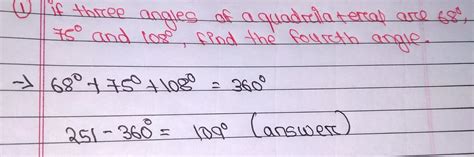 ① If three angles of a quadrilateral are 68°
75° and 108°, find the fourth angle.
→ 68° + 75° + 108° = 360°
251 - 360° = 109° (answer)